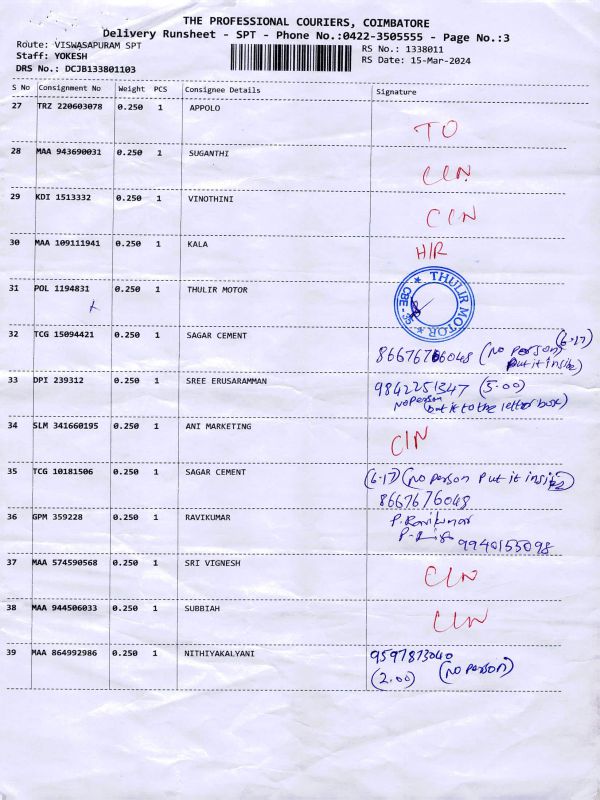 THE PROFESSIONAL COURIERS, COIMBATORE
Delivery Runsheet - SPT - Phone No.:0422-3505555 - Page No.:3
Route: VISWASAPURAM SPT
Staff: YOKESH
DRS No.: DCJB133801103
RS No.: 1338011
RS Date: 15-Mar-2024
S No Consignment No Weight PCS Consignee Details Signature
27 TRZ 220603078 0.250 1 APPOLO TO
28 MAA 943690031 0.250 1 SUGANTHI CLN
29 KDI 1513332 0.250 1 VINOTHINI CLN
30 MAA 109111941 0.250 1 KALA H/R
31 POL 1194831 0.250 1 THULIR MOTOR
★ THULIR MOTOR ★ CBE - 35
32 TCG 15094421 0.250 1 SAGAR CEMENT
(6-17)
8667676048 (No person
Put it inside)
33 DPI 239312 0.250 1 SREE ERUSARAMMAN 9842251347 (5.00)
No person
(put it to the letter box)
34 SLM 341660195 0.250 1 ANI MARKETING CIN
35 TCG 10181506 0.250 1 SAGAR CEMENT (6-17) (No person Put it inside)
8667676048
36 GPM 359228 0.250 1 RAVIKUMAR P.Ravikumar
9940155098
37 MAA 574590568 0.250 1 SRI VIGNESH CLN
38 MAA 944506033 0.250 1 SUBBIAH CLN
39 MAA 864992986 0.250 1 NITHIYAKALYANI 9597873040
(2.00) (No person)